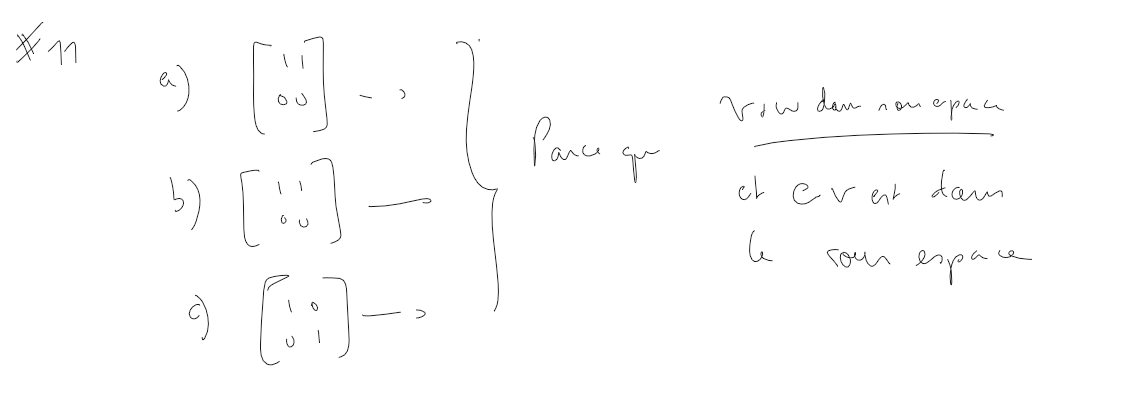 # 11
a) [ 1 1 →
0 0 ]
b) [ 1 1 —
0 0 ]
c) [ 1 0 →
0 1 ]
} Parce que
v+w dans sous espace
et cv est dans
le sous espace